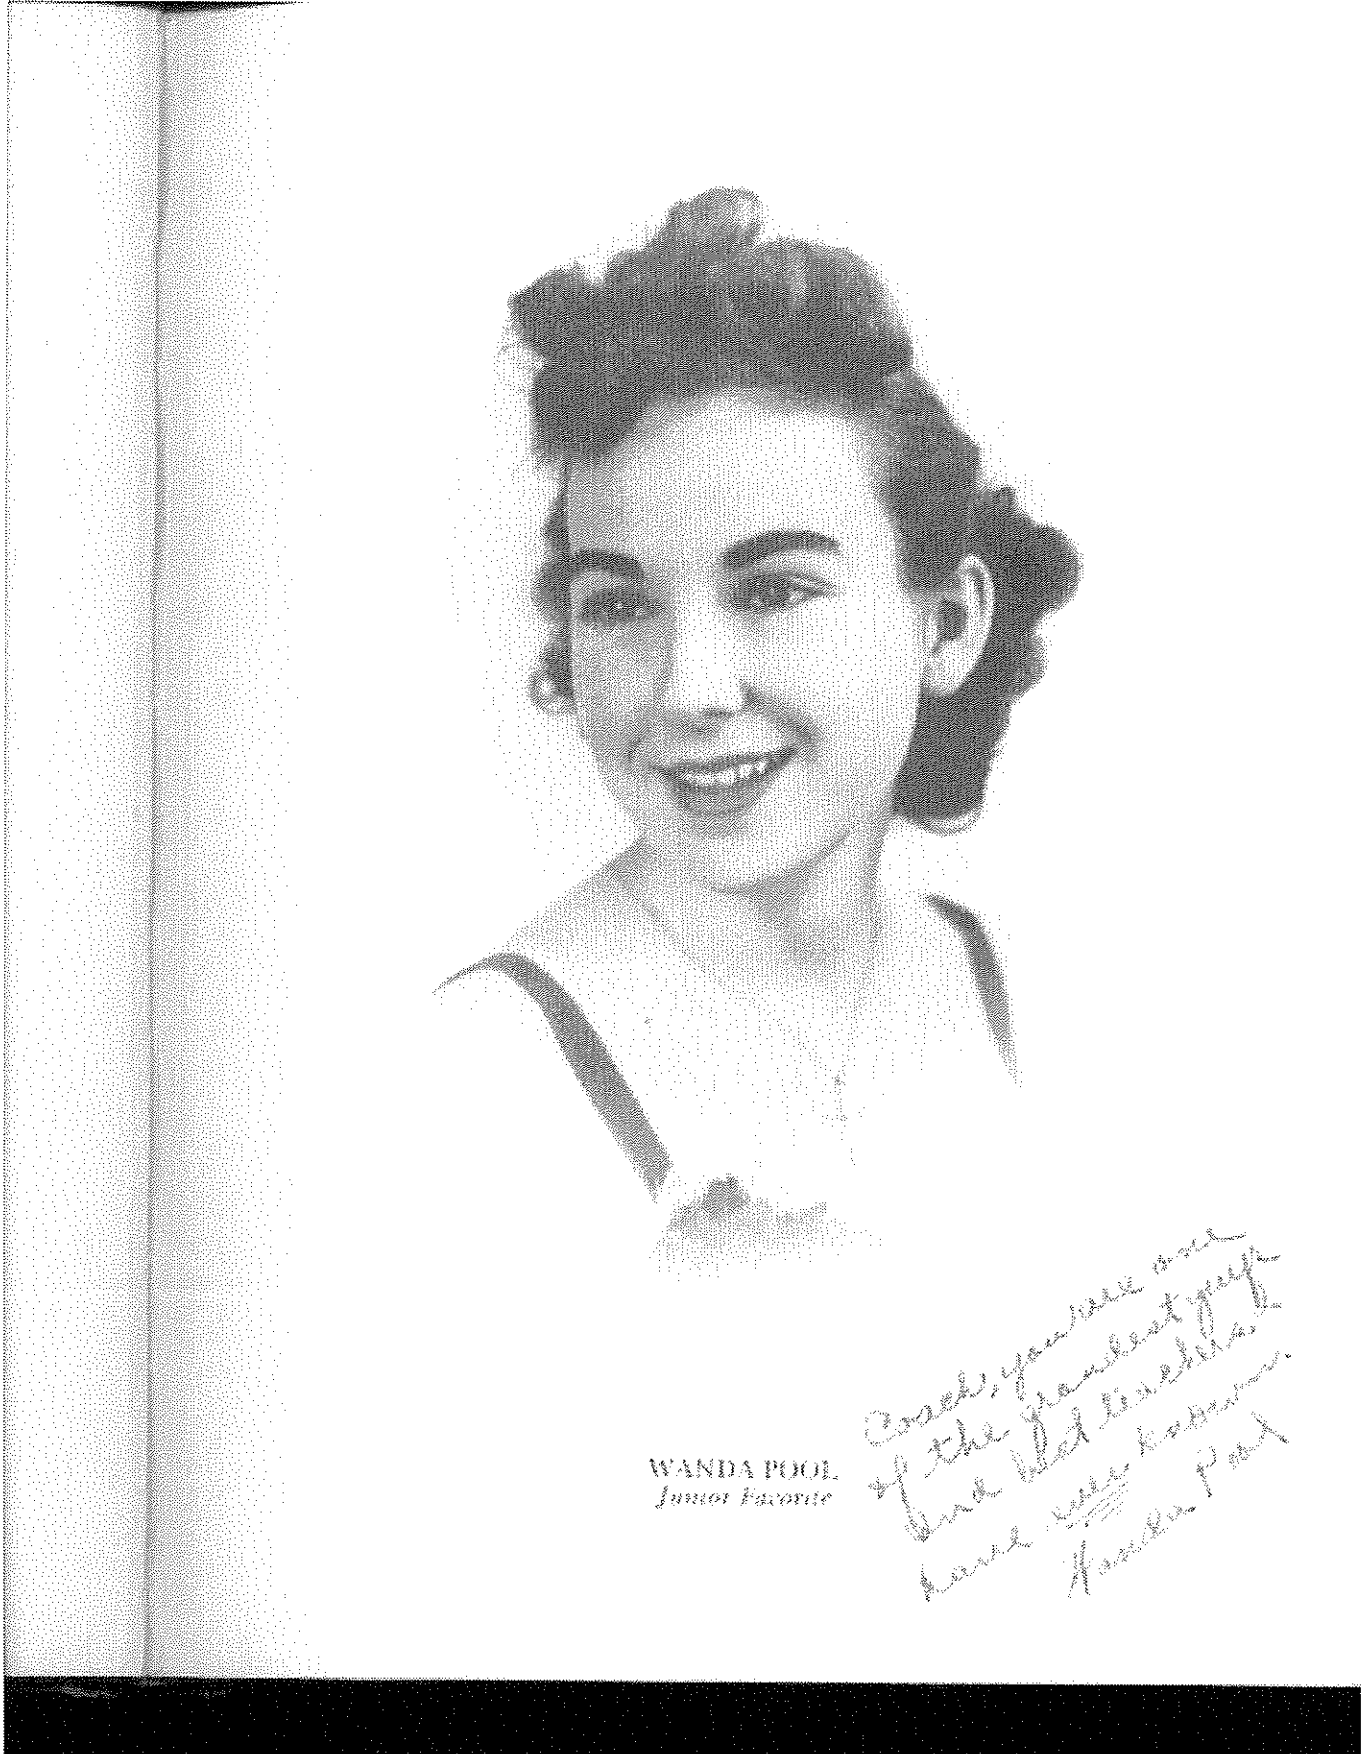 WANDA POOL
Junior Favorite
Coach, you are one
of the grandest guys
and best teachers I
have ever known.
Wanda Pool